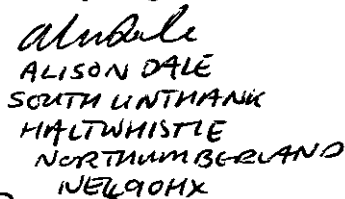 ALISON DALE
SOUTH UNTHANK
HALTWHISTLE
NORTHUMBERLAND
NE49 0HX